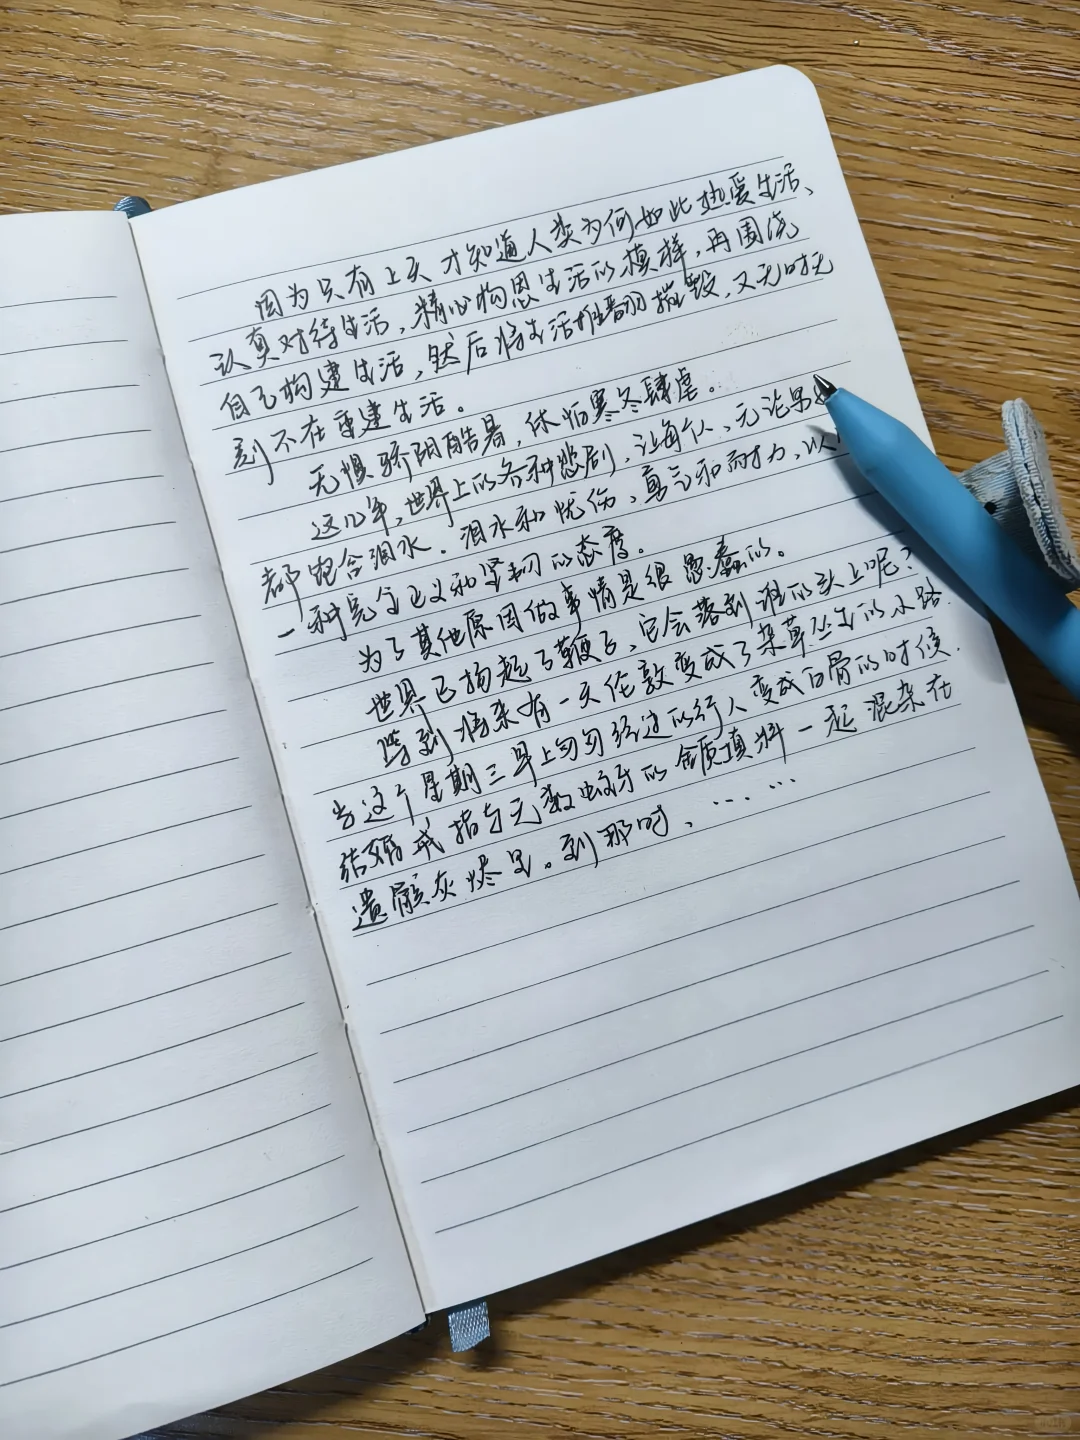 因为只有上天才知道人类为何如此热爱生活、
认真对待生活,精心构思生活的模样,再围绕
自己构建生活,然后将生活推翻摧毁,又无时无
刻不在重建生活。
无惧骄阳酷暑,休怕寒冬肆虐。
这几年,世界上的各种悲剧,让每个人,无论男
都饱含泪水.泪水和忧伤,勇气和耐力,以
一种完全正义和坚韧的态度。
为了其他原因做事情是很愚蠢的。
世界已扬起了鞭子,它会落到谁的头上呢?
等到将来有一天伦敦变成了杂草丛生的小路.
当这个星期三早上匆匆经过的行人变成白骨的时候.
结婚戒指与无数蛀牙的金质填料一起混杂在
遗骸灰烬里。到那时、……